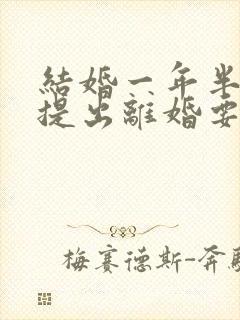 結婚一年半
提出離婚要
梅賽德斯-奔馳